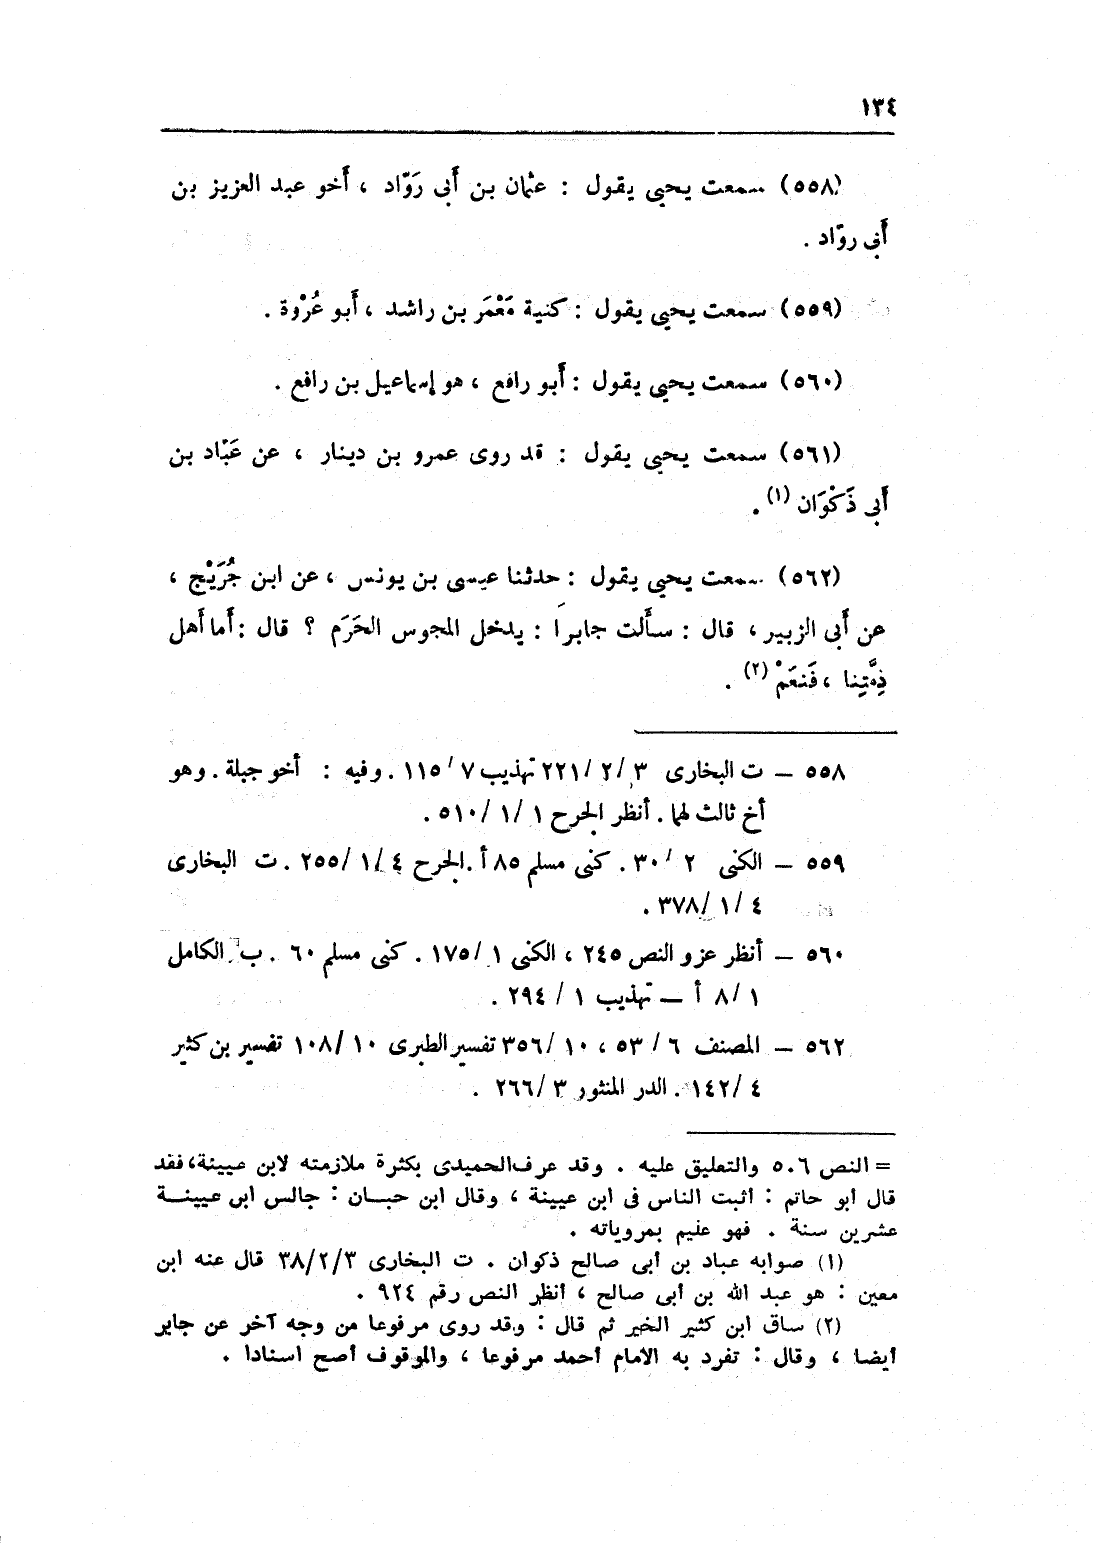 ١٣٤
(٥٥٨) سمعت يحيى يقول : عثمان بن أَبى رَوّاد ، أَخو عبد العزيز بن
أَبى روّاد .
(٥٥٩) سمعت يحيى يقول : كنية مَعْمَر بن راشد ، أَبو عُرْوة .
(٥٦٠) سمعت يحيى يقول : أَبو رافع ، هو إسماعيل بن رافع .
(٥٦١) سمعت يحيى يقول : قد روى عمرو بن دينار ، عن عَبَّاد بن
أَبى ذَكْوَان (١) .
(٥٦٢) سمعت يحيى يقول : حدثنا عيسى بن يونس ، عن ابن جُرَيْج ،
عن أَبى الزبير ، قال : سأَلت جابرا : يدخل المجوس الحَرَم ؟ قال : أَما أَهل
ذِمَّتِنا ، فَنَعَمْ (٢) .
٥٥٨ – ت البخارى ٣/ ٢/ ٢٢١ تهذيب ٧/ ١١٥ . وفيه : أخو جبلة . وهو
أخ ثالث لهما . أنظر الجرح ١ /١ /٥١٠ .
٥٥٩ – الكنى ٢ /٣٠ . كنى مسلم ٨٥ أ . الجرح ٤ /١ /٢٥٥ . ت البخارى
٤ /١ /٣٧٨ .
٥٦٠ – أنظر عزو النص ٢٤٥ ، الكنى ١ /١٧٥ . كنى مسلم ٦٠ . ب الكامل
١ /٨ أ – تهذيب ١ / ٢٩٤ .
٥٦٢ – المصنف ٦ / ٥٣ ، ١٠ /٣٥٦ تفسير الطبرى ١٠ /١٠٨ تفسير بن كثير
٤ /١٤٢ . الدر المنثور ٣ /٢٦٦ .
= النص ٥٠٦ والتعليق عليه . وقد عرف الحميدى بكثرة ملازمته لابن عيينة، فقد
قال ابو حاتم : اثبت الناس فى ابن عيينة ، وقال ابن حبان : جالس ابن عيينة
عشرين سنة . فهو عليم بمروياته .
(١) صوابه عباد بن ابى صالح ذكوان . ت البخارى ٣/٢/٣٨ قال عنه ابن
معين : هو عبد الله بن ابى صالح ، انظر النص رقم ٩٢٤ .
(٢) ساق ابن كثير الخبر ثم قال : وقد روى مرفوعا من وجه آخر عن جابر
أيضا ، وقال : تفرد به الامام أحمد مرفوعا ، والموقوف أصح اسنادا .